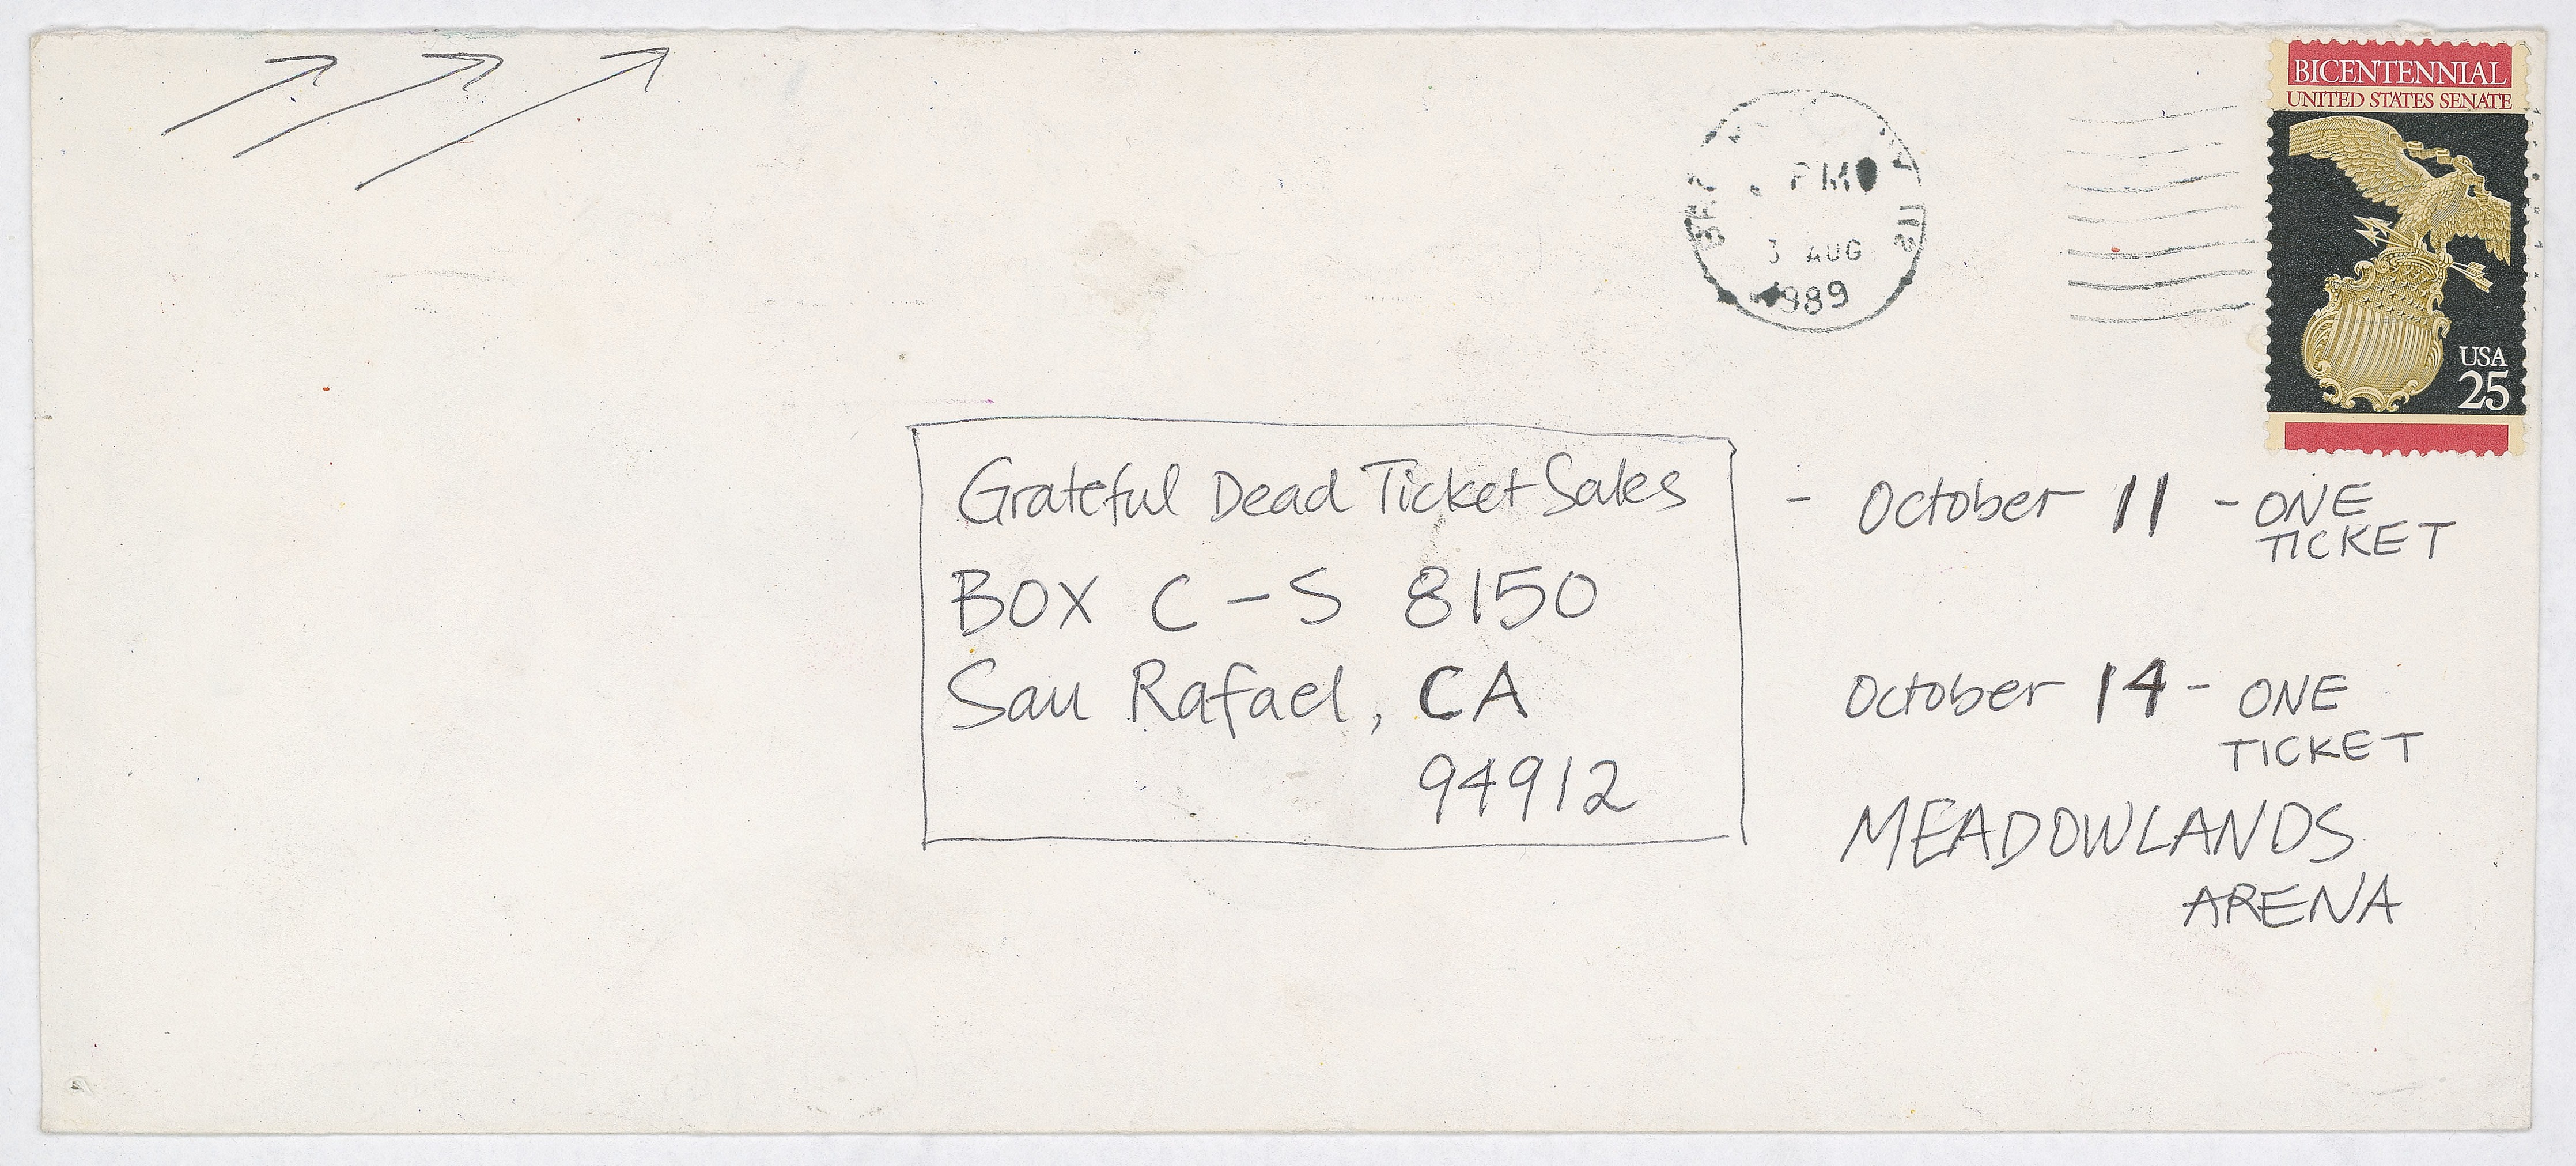 BICENTENNIAL
UNITED STATES SENATE
USA
25
PM
3 AUG
1989
Grateful Dead Ticket Sales
BOX C-S 8150
San Rafael, CA
94912
- October 11 - ONE
TICKET
October 14 - ONE
TICKET
MEADOWLANDS
ARENA